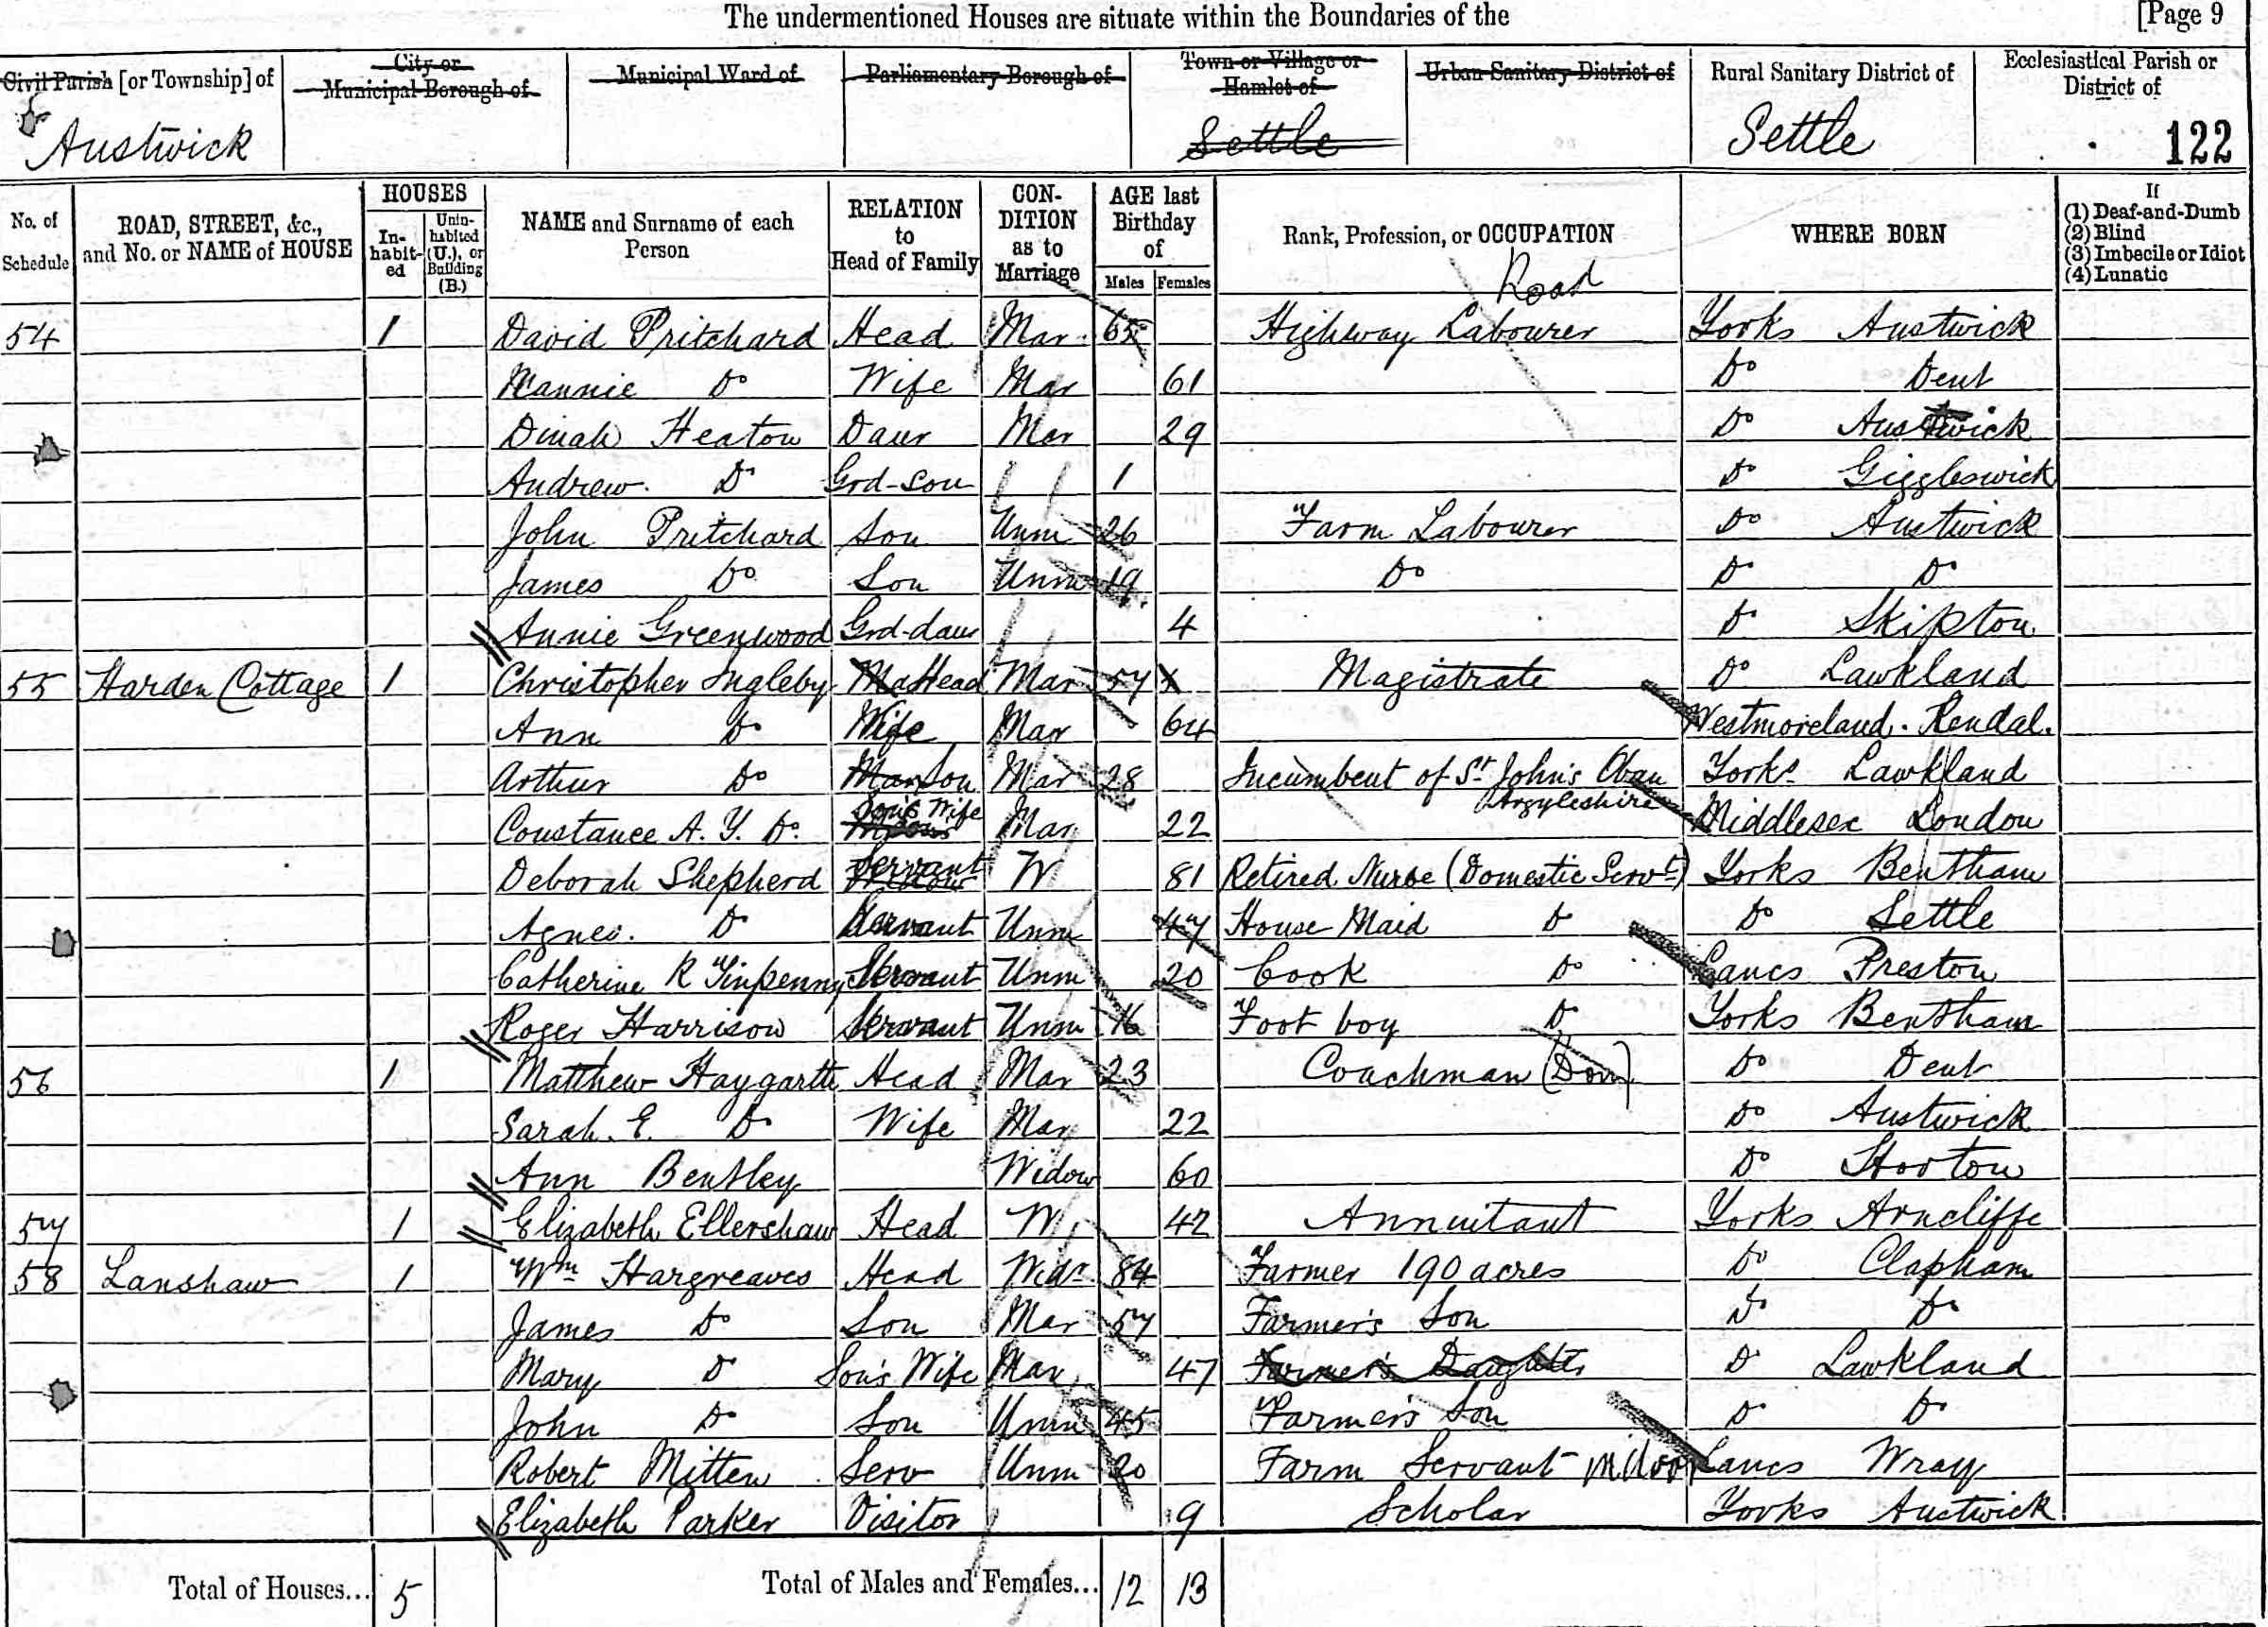 The undermentioned Houses are situate within the Boundaries of the [Page 9
Civil Parish [or Township] of
City or Municipal Borough of
Municipal Ward of
Parliamentary Borough of
Town or Village or Hamlet of
Urban Sanitary District of
Rural Sanitary District of
Ecclesiastical Parish or District of
Austwick Settle Settle 122
No. of Schedule
ROAD, STREET, &c., and No. or NAME of HOUSE
HOUSES
In-habit-ed
Unin-habited (U.), or Building (B.)
NAME and Surname of each Person
RELATION to Head of Family
CON-DITION as to Marriage
AGE last Birthday of
Males Females
Rank, Profession, or OCCUPATION
WHERE BORN
If
(1) Deaf-and-Dumb
(2) Blind
(3) Imbecile or Idiot
(4) Lunatic
Road
54 1 David Pritchard Head Mar 65 Highway Labourer Yorks Austwick
Nannie Do Wife Mar 61 Do Dent
Dinah Heaton Daur Mar 29 Do Austwick
Andrew Do Grd-son 1 Do Giggleswick
John Pritchard Son Unm 26 Farm Labourer Do Austwick
James Do Son Unm 19 Do Do Do
Annie Greenwood Grd-daur 4 Do Skipton
55 Harden Cottage 1 Christopher Ingleby Head Mar 57 Magistrate Do Lawkland
Ann Do Wife Mar 64 Westmoreland. Kendal.
Arthur Do Son Mar 28 Incumbent of St John's Oban Argyleshire Yorks Lawkland
Constance A. Y. Do Son's Wife Mar 22 Middlesex London
Deborah Shepherd Servant W 81 Retired Nurse (Domestic Servt) Yorks Bentham
Agnes Do Servant Unm 47 House Maid Do Do Settle
Catherine R Servant Unm 20 Cook Do Lancs Preston
Roger Harrison Servant Unm 16 Foot boy Do Yorks Bentham
56 1 Matthew Haygarth Head Mar 23 Coachman (Dom) Do Dent
Sarah. E. Do Wife Mar 22 Do Austwick
Ann Bentley Widow 60 Do Horton
57 1 Elizabeth Ellershaw Head W 42 Annuitant Yorks Arncliffe
58 Lanshaw 1 Wm Hargreaves Head Widr 84 Farmer 190 acres Do Clapham
James Do Son Mar 57 Farmer's Son Do Do
Mary Do Son's Wife Mar 47 Farmer's Daughter Do Lawkland
John Do Son Unm 45 Farmer's Son Do Do
Robert Mitten Serv Unm 20 Farm Servant Lancs Wray
Elizabeth Parker Visitor 9 Scholar Yorks Austwick
Total of Houses... 5 Total of Males and Females... 12 13